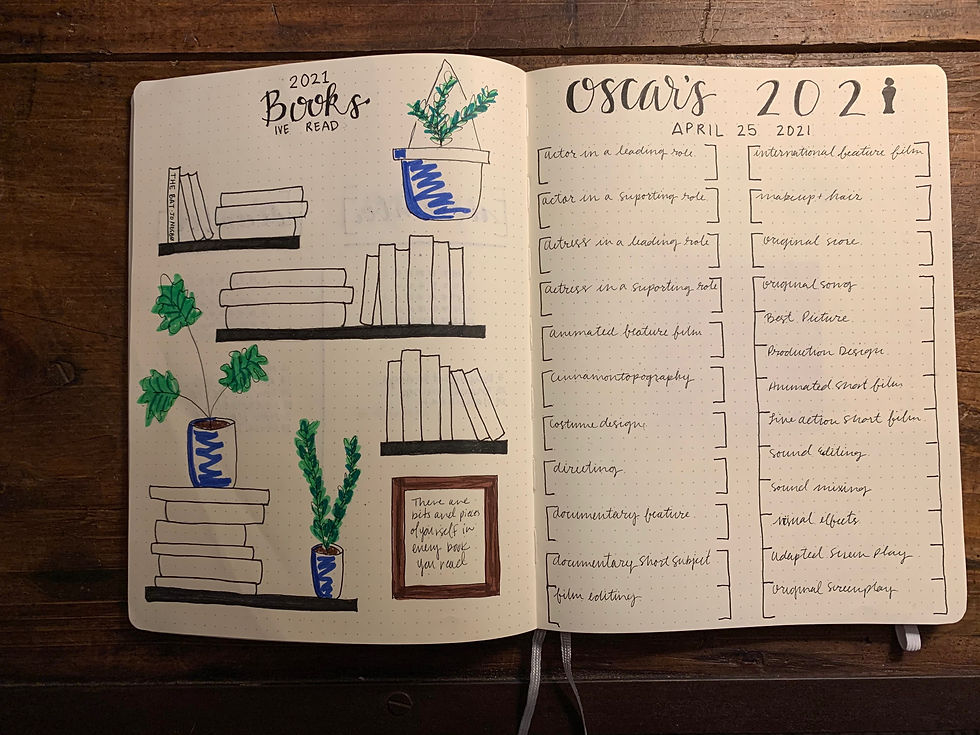 2021
Books
IVE READ
THE BAT
There are
bits and pieces
of yourself in
every book
you read
OSCAR'S 2021
APRIL 25 2021
actor in a leading role
actor in a suporting role
actress in a leading role
actress in a suporting role
animated feature film
cinnamontopography
costume design
directing
documentary feature
documentary short subject
film editing
international feature film
makeup + hair
original score
original song
Best Picture
Production Design
Animated short film
Live action short film
Sound Editing
Sound mixing
visual effects
Adapted Screen Play
Original Screenplay